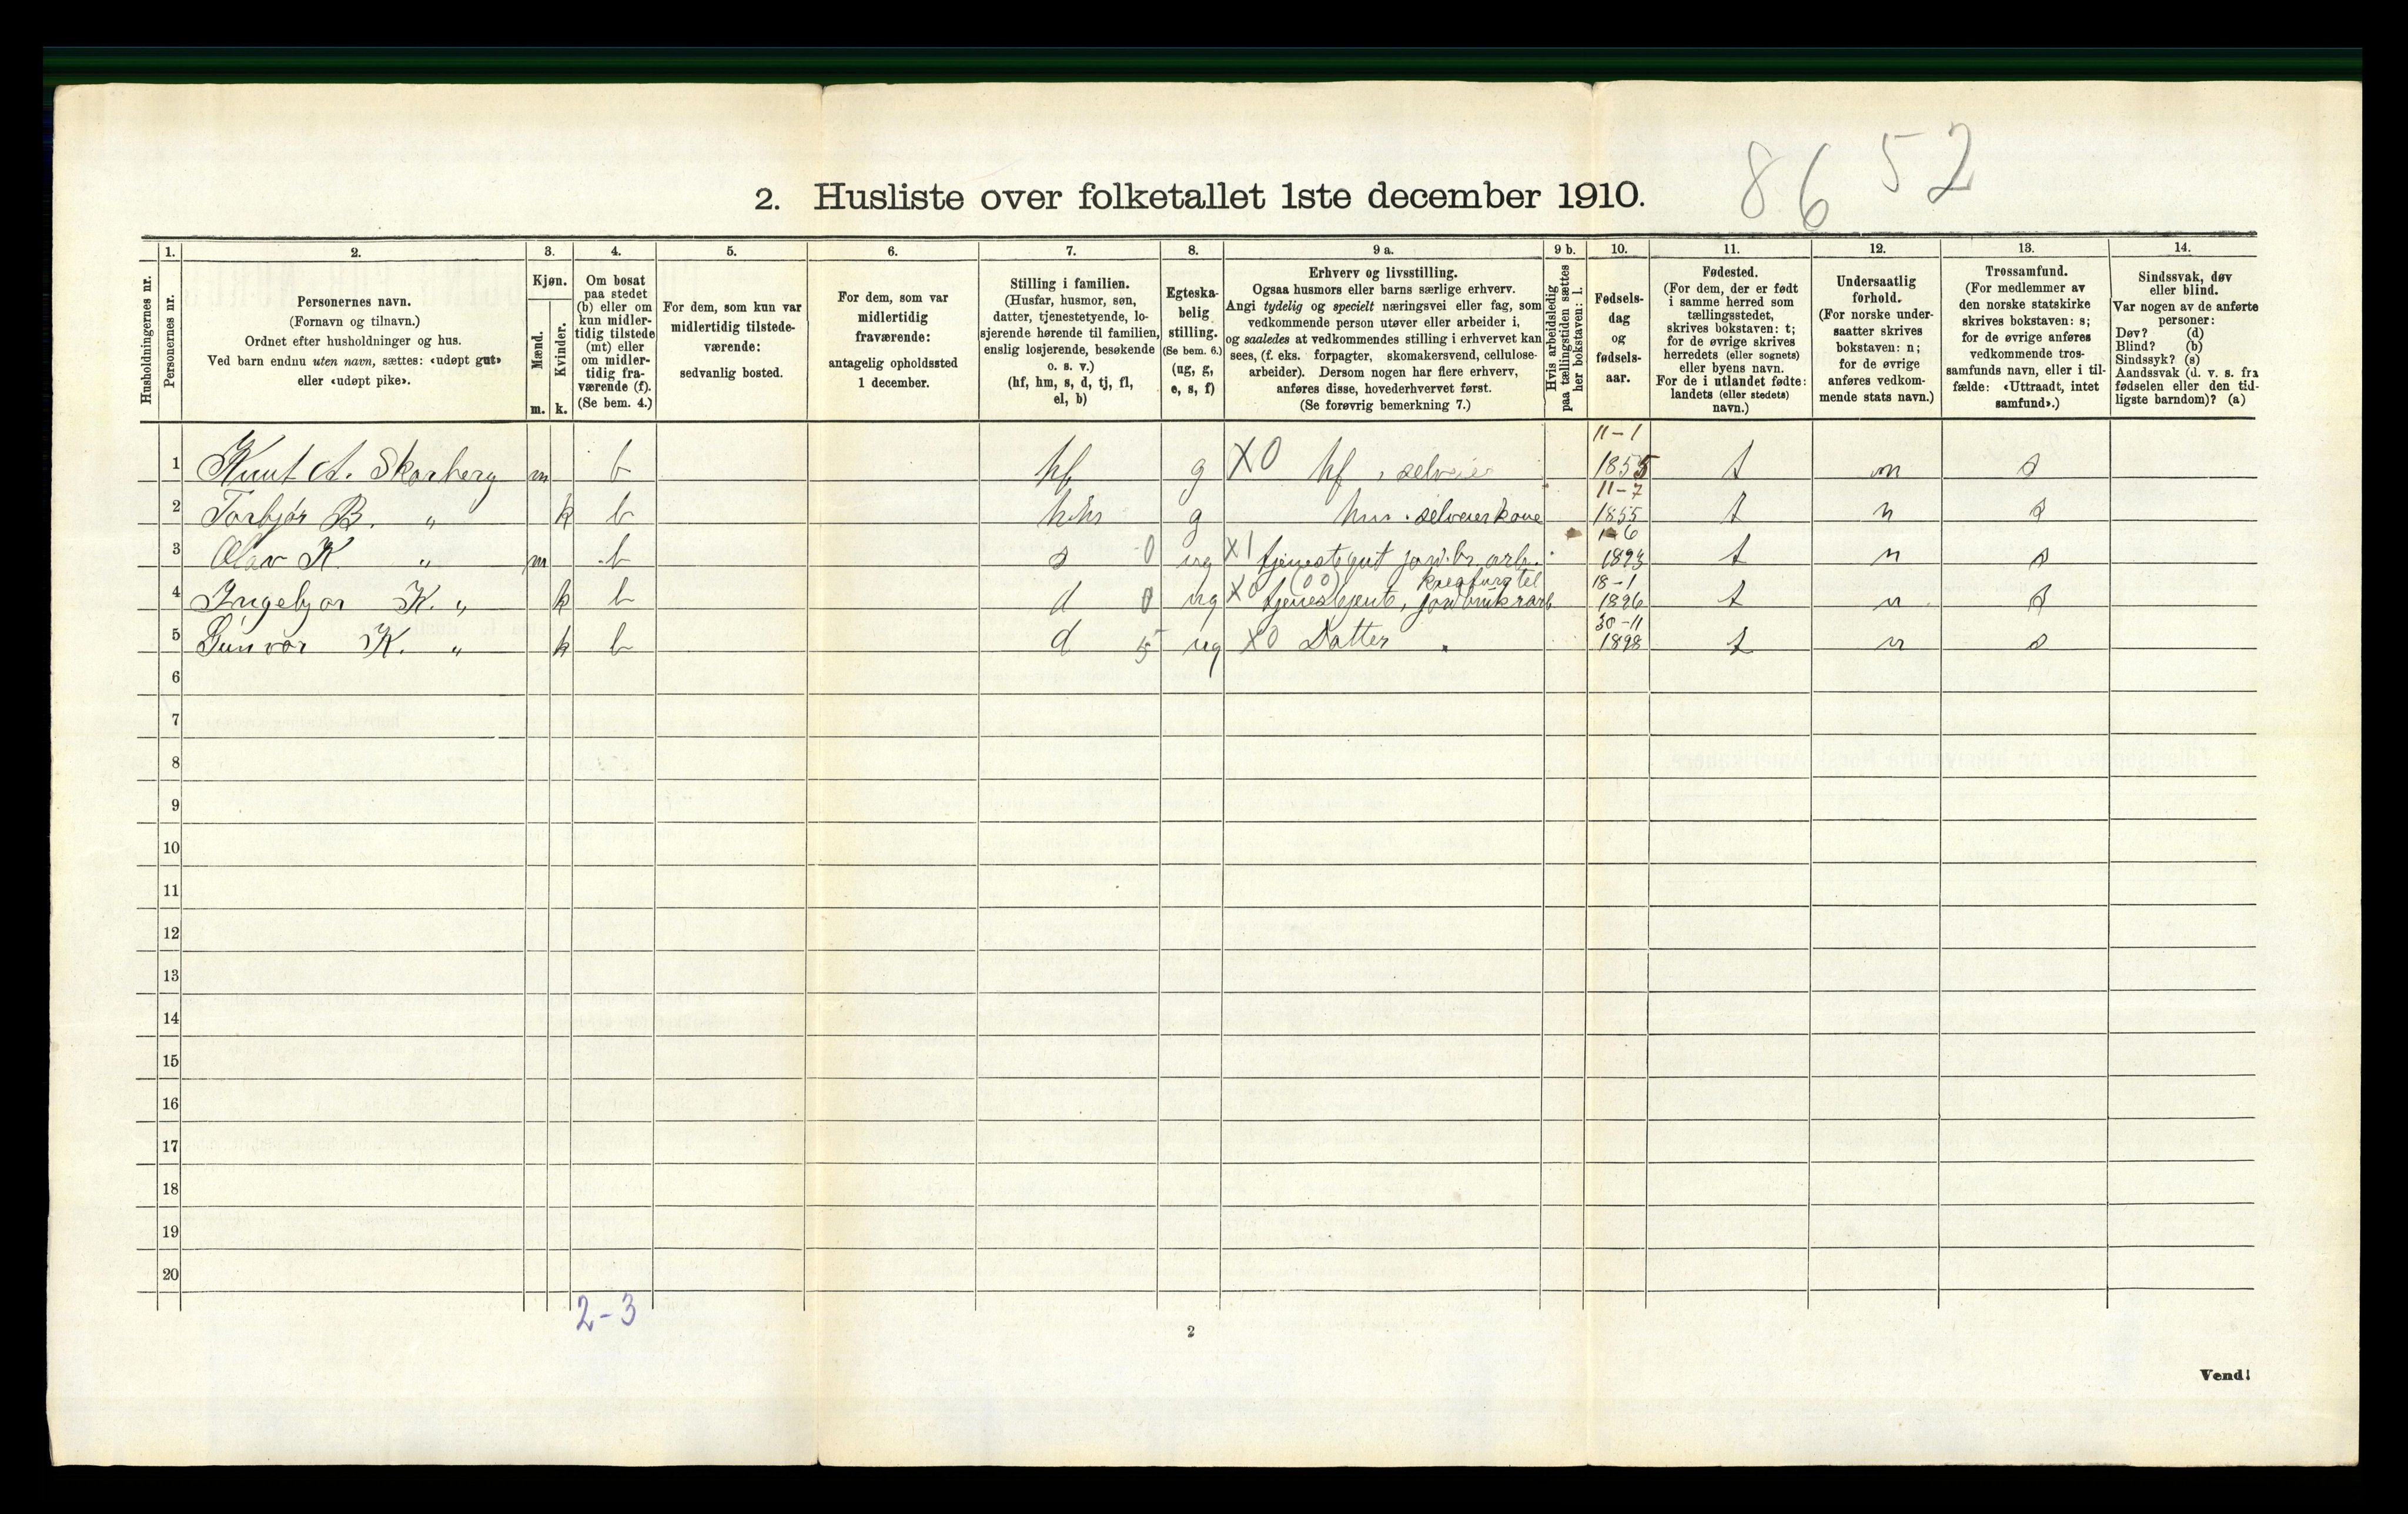 8652
2. Husliste over folketallet 1ste december 1910.
Husholdningernes nr.
1.
Personernes nr.
2.
Personernes navn.
(Fornavn og tilnavn.)
Ordnet efter husholdninger og hus.
Ved barn endnu uten navn, sættes: «udøpt gut»
eller «udøpt pike».
3.
Kjøn.
Mænd.
Kvinder.
m. k.
4.
Om bosat
paa stedet
(b) eller om
kun midler-
tidig tilstede
(mt) eller
om midler-
tidig fra-
værende (f).
(Se bem. 4.)
5.
For dem, som kun var
midlertidig tilstede-
værende:
sedvanlig bosted.
6.
For dem, som var
midlertidig
fraværende:
antagelig opholdssted
1 december.
7.
Stilling i familien.
(Husfar, husmor, søn,
datter, tjenestetyende, lo-
sjerende hørende til familien,
enslig losjerende, besøkende
o. s. v.)
(hf, hm, s, d, tj, fl,
el, b)
8.
Egteska-
belig
stilling.
(Se bem. 6.)
(ug, g,
e, s, f)
9 a.
Erhverv og livsstilling.
Ogsaa husmors eller barns særlige erhverv.
Angi tydelig og specielt næringsvei eller fag, som
vedkommende person utøver eller arbeider i,
og saaledes at vedkommendes stilling i erhvervet kan
sees, (f. eks. forpagter, skomakersvend, cellulose-
arbeider). Dersom nogen har flere erhverv,
anføres disse, hovederhvervet først.
(Se forøvrig bemerkning 7.)
9 b.
Hvis arbeidsledig
paa tællingstiden sættes
her bokstaven: l.
10.
Fødsels-
dag
og
fødsels-
aar.
11.
Fødested.
(For dem, der er født
i samme herred som
tællingsstedet,
skrives bokstaven: t;
for de øvrige skrives
herredets (eller sognets)
eller byens navn.
For de i utlandet fødte:
landets (eller stedets)
navn.)
12.
Undersaatlig
forhold.
(For norske under-
saatter skrives
bokstaven: n;
for de øvrige
anføres vedkom-
mende stats navn.)
13.
Trossamfund.
(For medlemmer av
den norske statskirke
skrives bokstaven: s;
for de øvrige anføres
vedkommende tros-
samfunds navn, eller i til-
fælde: «Uttraadt, intet
samfund».)
14.
Sindssvak, døv
eller blind.
Var nogen av de anførte
personer:
Døv? (d)
Blind? (b)
Sindssyk? (s)
Aandssvak (d. v. s. fra
fødselen eller den tid-
ligste barndom)? (a)
1 Knut A. Skarberg m b hf g X0 hf, selveier 11-1 1855 t n s
2 Torbjør B. " k b hm g hm. selveierkone 11-7 1855 t n s
3 Olav K. " m b s 0 ug X1 tjenestegut jordbr. arb. 1-6 1893 t n s
4 Ingebjør K. " k b d 0 ug X0 tjenestejente, jordbruksarb 18-1 1896 t n s
5 Gunvor K. " k b d 5 ug X0 Datter " 30-11 1898 t n s
6
7
8
9
10
11
12
13
14
15
16
17
18
19
20
2-3
2
Vend!